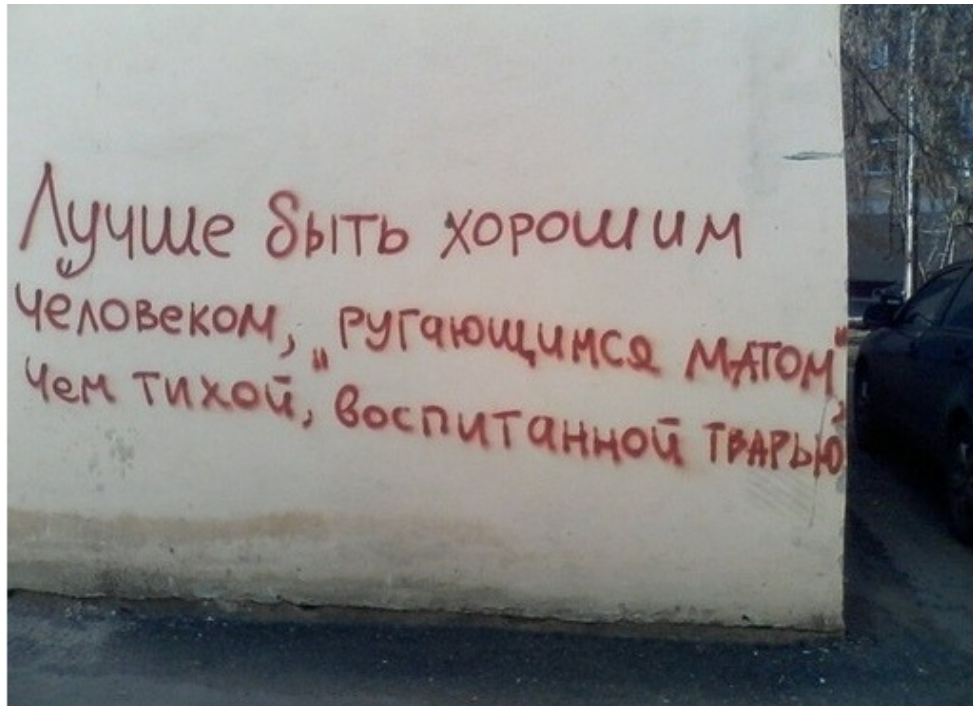 Лучше быть хорошим
человеком, „ругающимся матом“,
чем тихой, воспитанной тварью